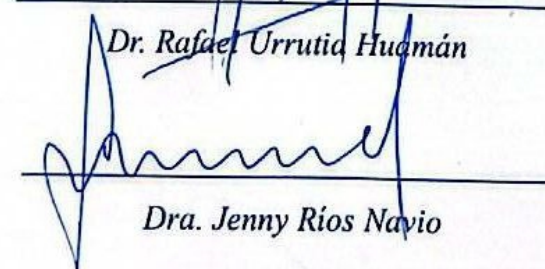 Dr. Rafael Urrutia Huamán
Dra. Jenny Ríos Navio